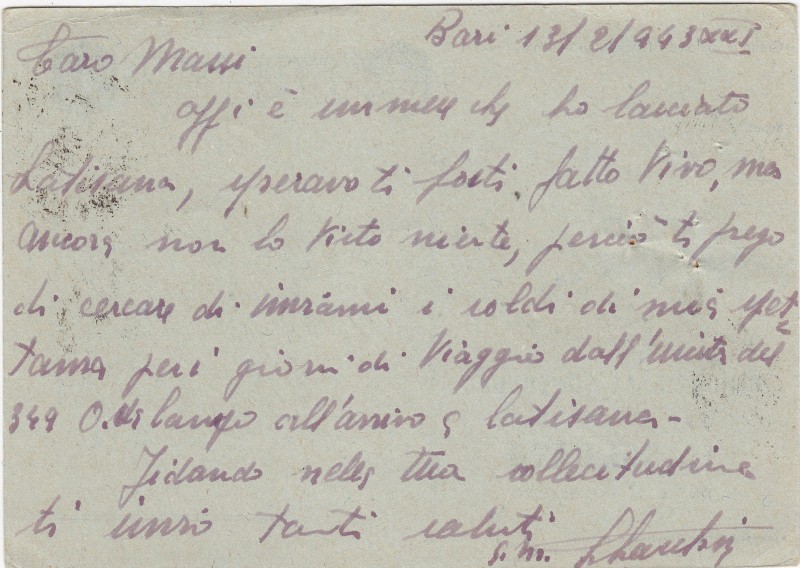 Bari 13/2/943 XXI
Caro Massi
oggi è un mese che ho lasciato
Latisana, speravo ti fosti fatto vivo, ma
ancora non ho visto niente, perciò ti prego
di cercare di inviarmi i soldi di mia spet=
tanza per i giorni di viaggio dall'uscita del
349 O. da campo all'arrivo a Latisana-
Fidando nella tua sollecitudine
ti invio tanti saluti
S.M.